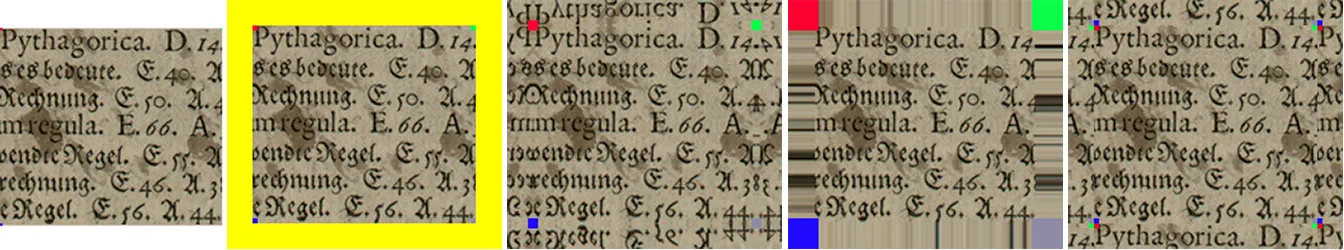 Pythagorica. D. 14.
s es bedeute. E. 40. A
Rechnung. E. 50. A. 4
m regula. E. 66. A.
Regel. E. 55. A
rechnung. E. 46. A. 3
e Regel. E. 56. A. 44.
Pythagorica. D. 14.
s es bedeute. E. 40. A
Rechnung. E. 50. A. 4
m regula. E. 66. A.
Regel. E. 55. A
rechnung. E. 46. A. 3
e Regel. E. 56. A. 44.
Pythagorica. D. 14.
es bedeute. E. 40. A
Rechnung. E. 50. A.
m regula. E. 66. A.
Regel. E. 55. A
rechnung. E. 46. A. 3
Regel. E. 56. A. 44.
Pythagorica. D. 14.
s es bedeute. E. 40. A
Rechnung. E. 50. A. 4
m regula. E. 66. A.
Regel. E. 55. A
rechnung. E. 46. A. 3
e Regel. E. 56. A. 44.
e Regel. E. 56. A. 44.
Pythagorica. D. 14.
s es bedeute. E. 40. A
Rechnung. E. 50. A. 4
m regula. E. 66. A.
Regel. E. 55. A
rechnung. E. 46. A. 3
e Regel. E. 56. A. 44.
Pythagorica. D. 14.